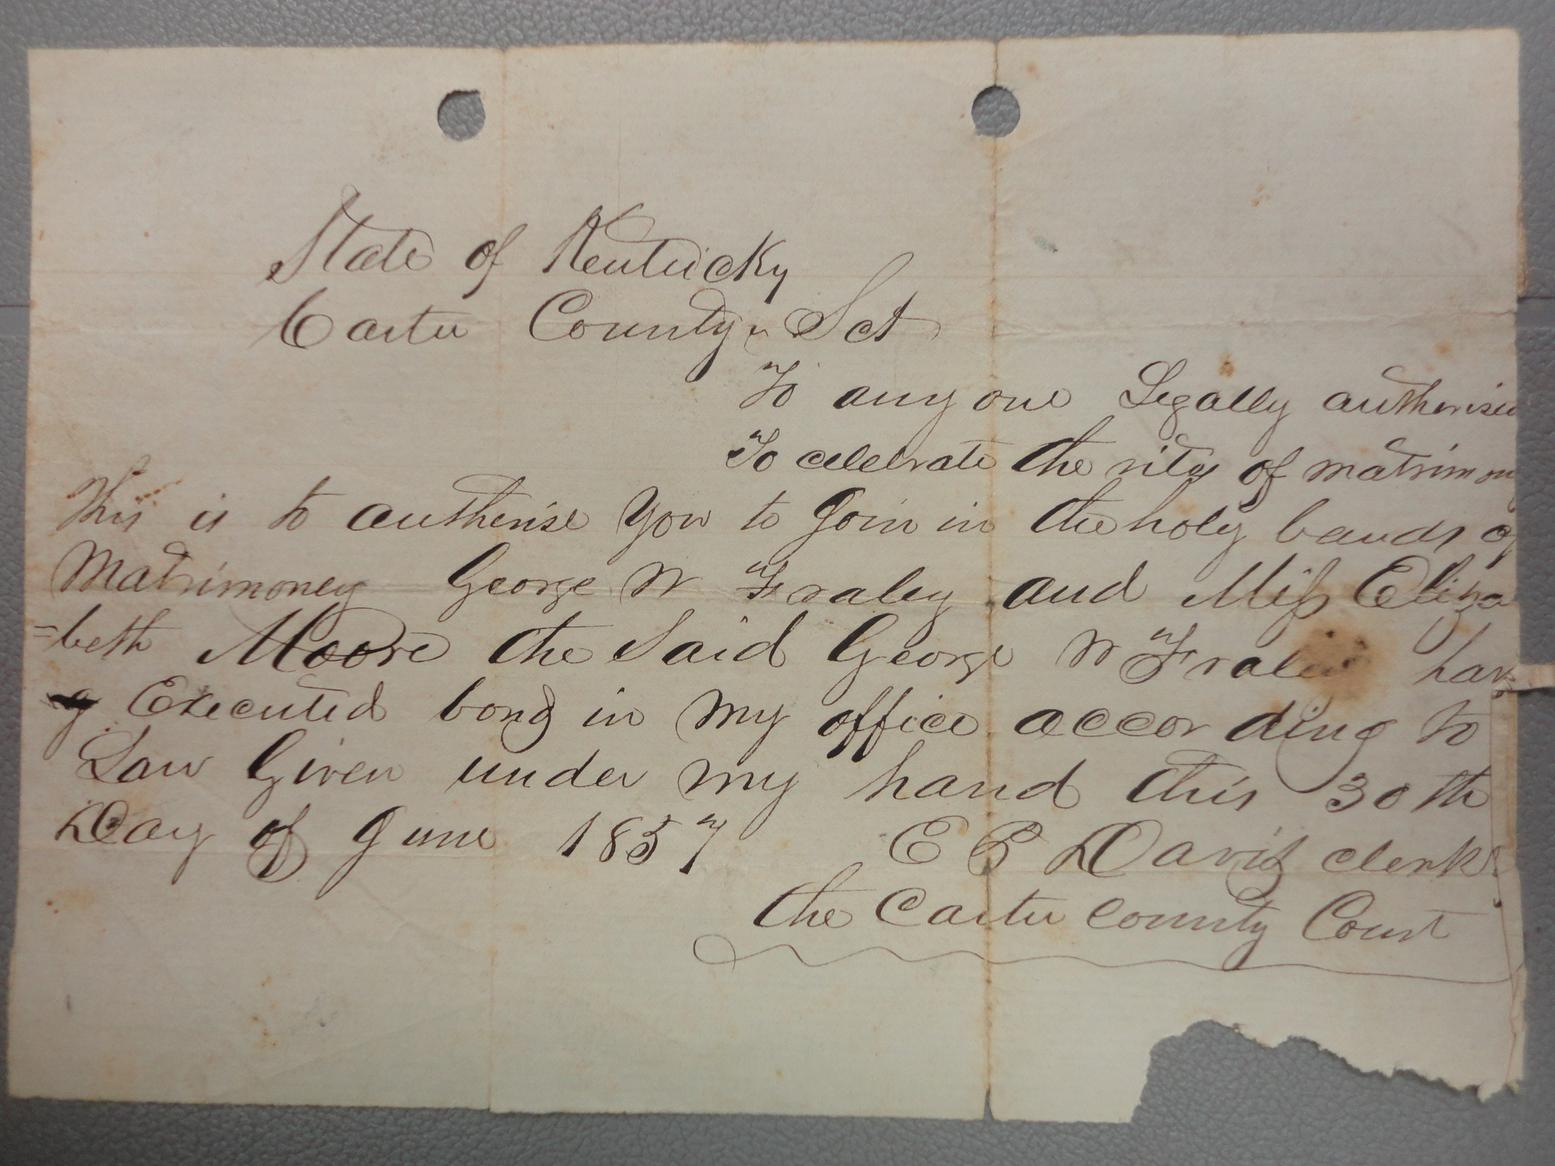 State of Kentucky
Carter County Sct
To any one Legally authorised
To celebrate the rity of matrimony
This is to authorise you to Join in the holy bands of
Matrimoney George W Fraley and Miss Eliza
=beth Moore the Said George W Fraley hav
g Executed bond in my office according to
Law Given under my hand this 30th
Day of June 1857 E B Davis clerk
the Carter County Court